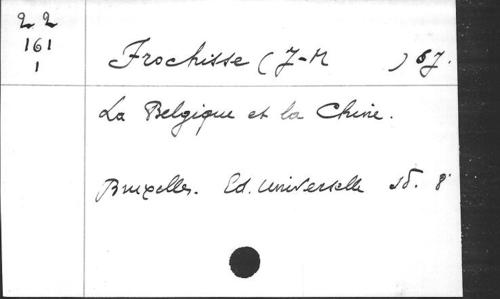 22
161
1
Frochisse (J-M ) SJ.
La Belgique et la Chine.
Bruxelles. Ed. Universelle sd. 8°